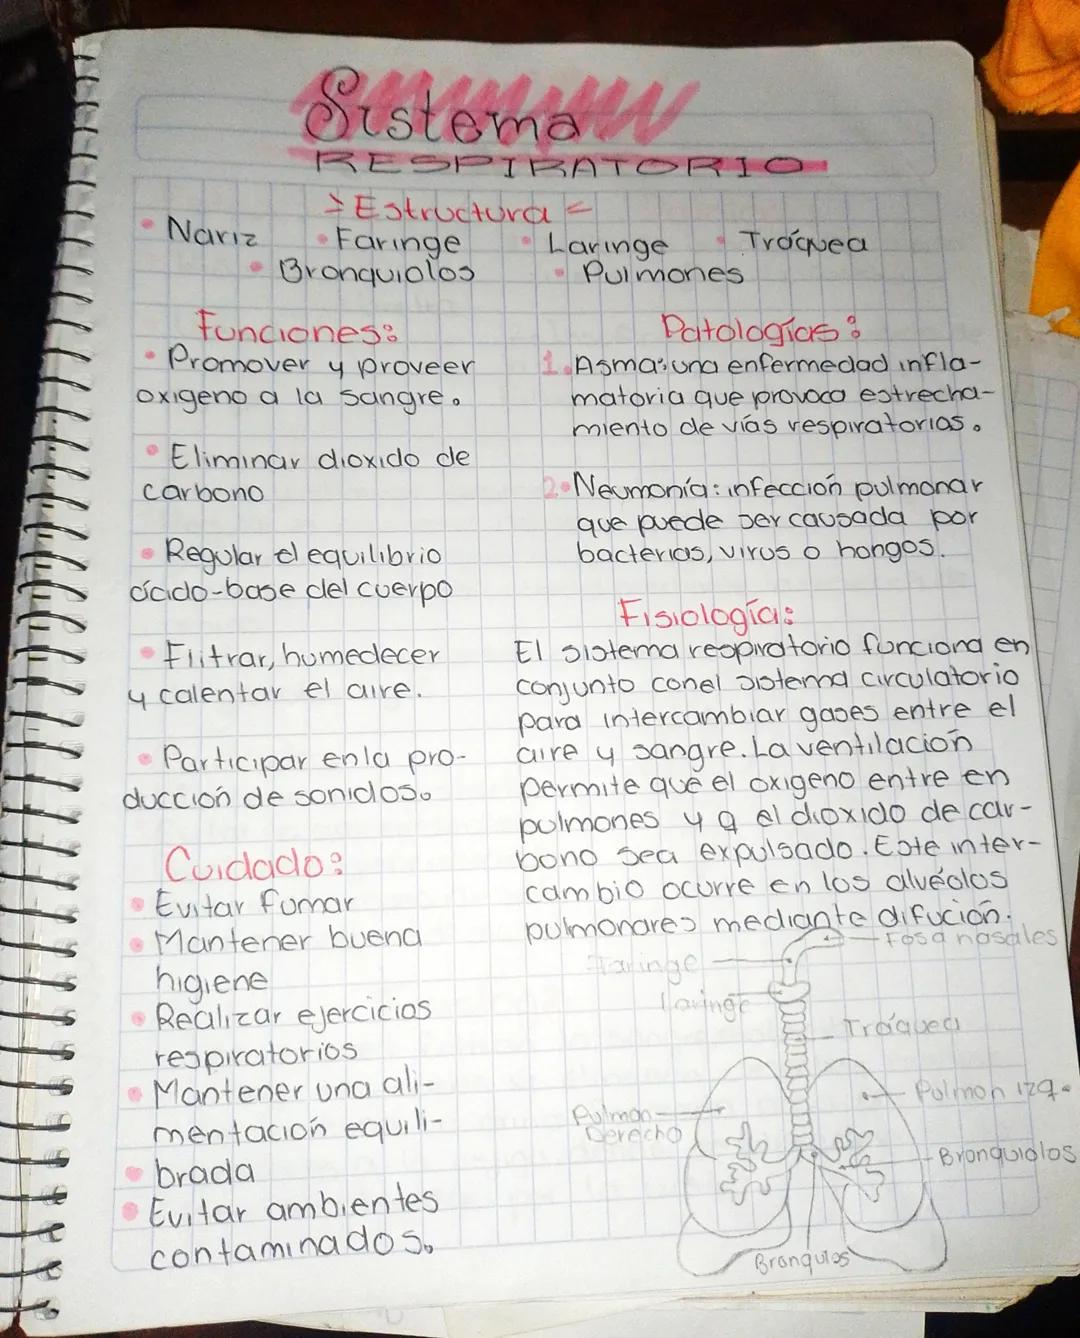 Sistema
RESPIRATORIO
> Estructura <
• Nariz • Faringe • Laringe • Tráquea
• Bronquiolos • Pulmones
Funciones:
• Promover y proveer
oxigeno a la sangre.
• Eliminar dioxido de
carbono
• Regular el equilibrio
ácido-base del cuerpo
• Filtrar, humedecer
y calentar el aire.
• Participar en la pro-
ducción de sonidos.
Cuidado:
• Evitar fumar
• Mantener buena
higiene
• Realizar ejercicios
respiratorios
• Mantener una ali-
mentación equili-
• brada
• Evitar ambientes
contaminados.
Patologías:
1. Asma: una enfermedad infla-
matoria que provoca estrecha-
miento de vías respiratorias.
2. Neumonía: infección pulmonar
que puede ser causada por
bacterias, virus o hongos.
Fisiología:
El sistema respiratorio funciona en
conjunto con el sistema circulatorio
para intercambiar gases entre el
aire y sangre. La ventilación
permite que el oxigeno entre en
pulmones y q el dioxido de car-
bono sea expulsado. Este inter-
cambio ocurre en los alvéolos
pulmonares mediante difución.
Fosa nasales
Faringe
Laringe
Tráquea
Pulmon izq.
Pulmon
Derecho
Bronquiolos
Bronquios